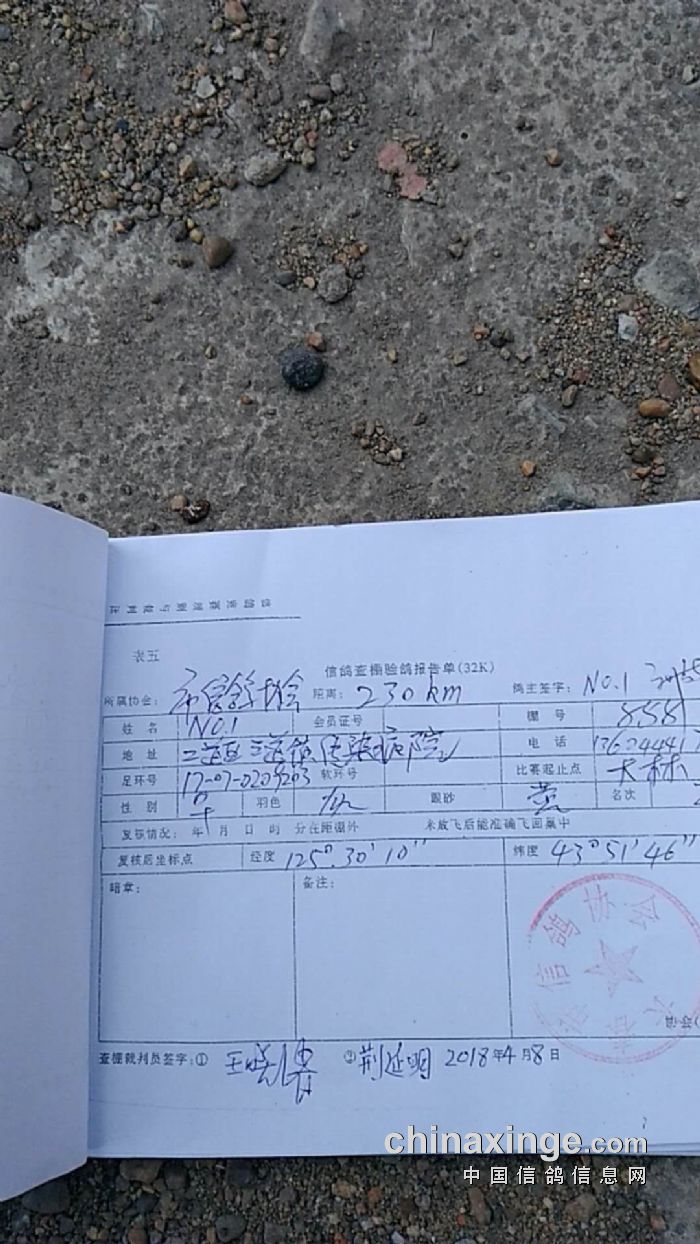 表五
信鸽查棚验鸽报告单(32K)
所属协会: 市信鸽协会 距离: 230km 鸽主签字: NO.1
姓名 NO.1 会员证号 棚号 858
地址 二道区三道镇传染病院 电话 13604441
足环号 17-07-0209203 软环号 比赛起止点 大林
性别 羽色 眼砂 黄 名次
复核情况: 年 月 日 时 分在距棚外 米放飞后能准确飞回巢中
复核后坐标点 经度 125°.30'10" 纬度 43°51'46"
暗章: 备注:
信鸽协会
查棚裁判员签字:① 王晓 ② 荆延明 2018年4月8日
chinaxinge.com
中国信鸽信息网